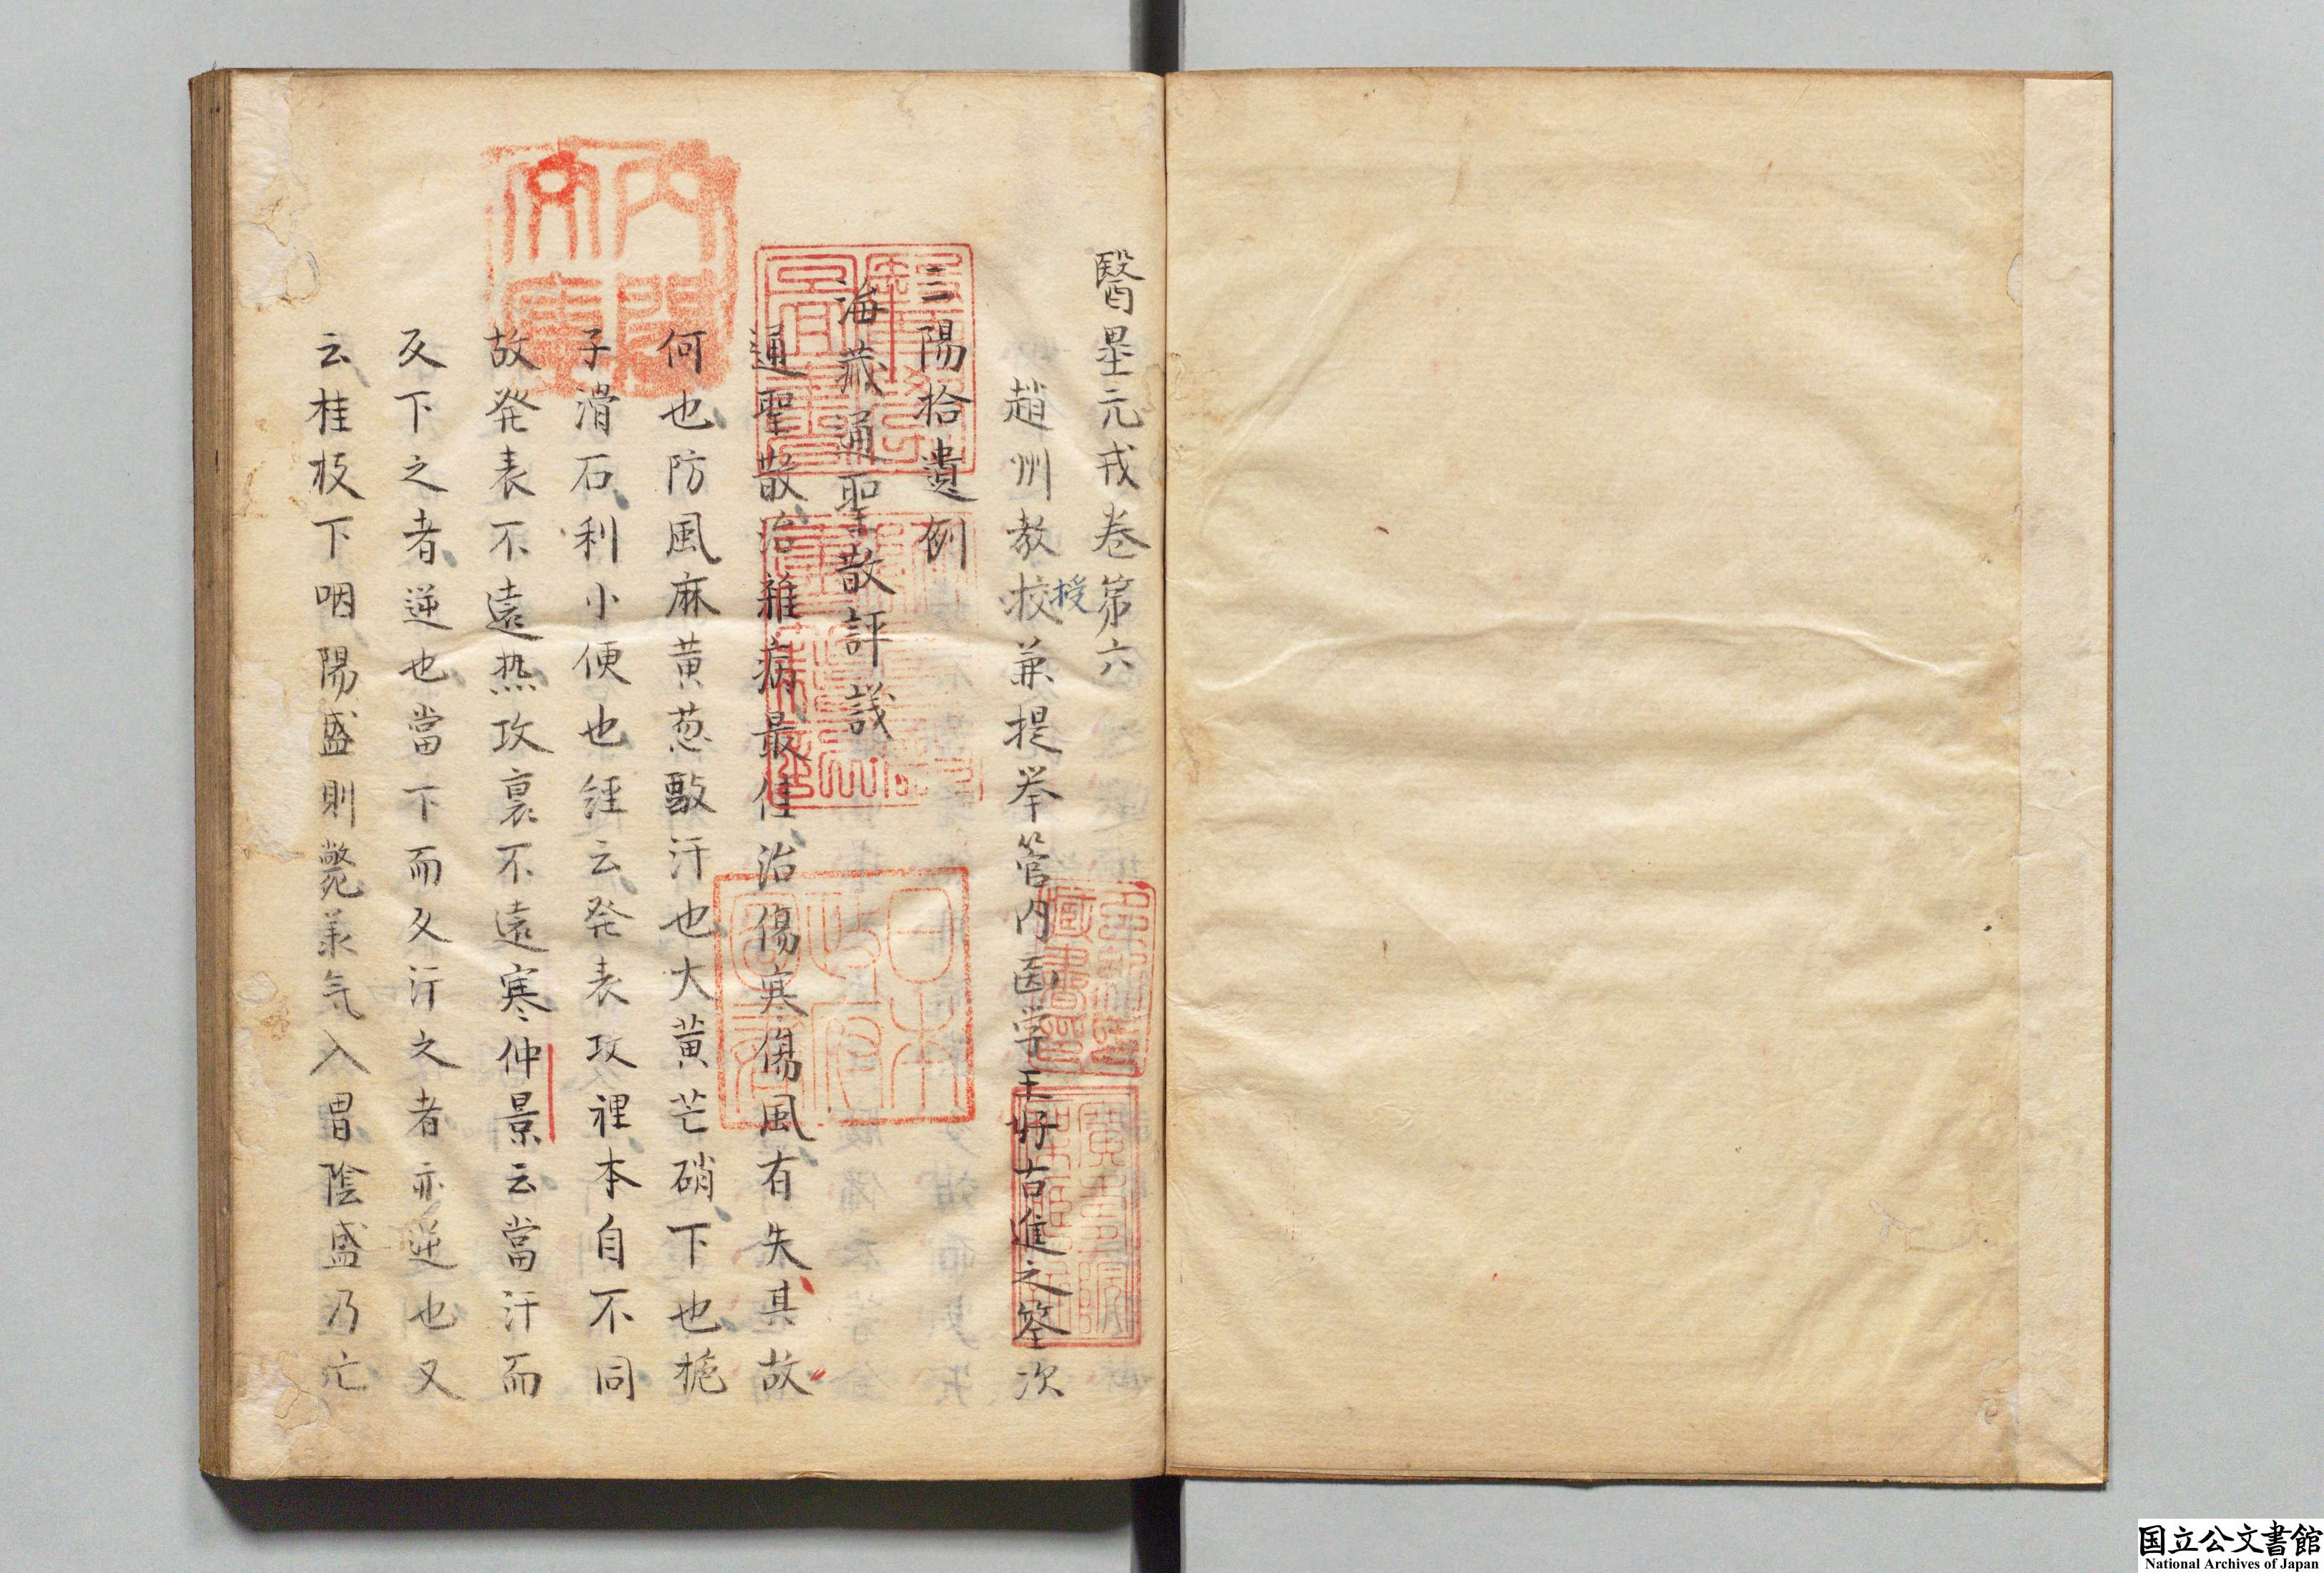 醫壘元戎卷第六
趙州教授兼提挙管内医学王好古進之筌次
授
三陽拾遺例
海藏通聖散評議
通聖散治雜病最佳治傷寒傷風有失其故
何也防風麻黄葱豉汗也大黄芒硝下也梔
子滑石利小便也経云発表攻裡本自不同
故発表不遠热攻裏不遠寒仲景云當汗而
反下之者逆也當下而反汗之者亦逆也又
云桂枝下咽陽盛則斃承気入胃陰盛乃亡
日本政府圖書
国立公文書館
National Archives of Japan